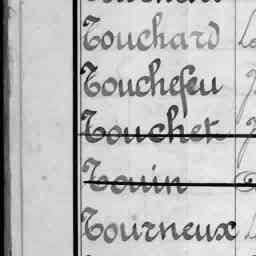 Touchard
Touchefeu
Touchet
Touin
Tourneux